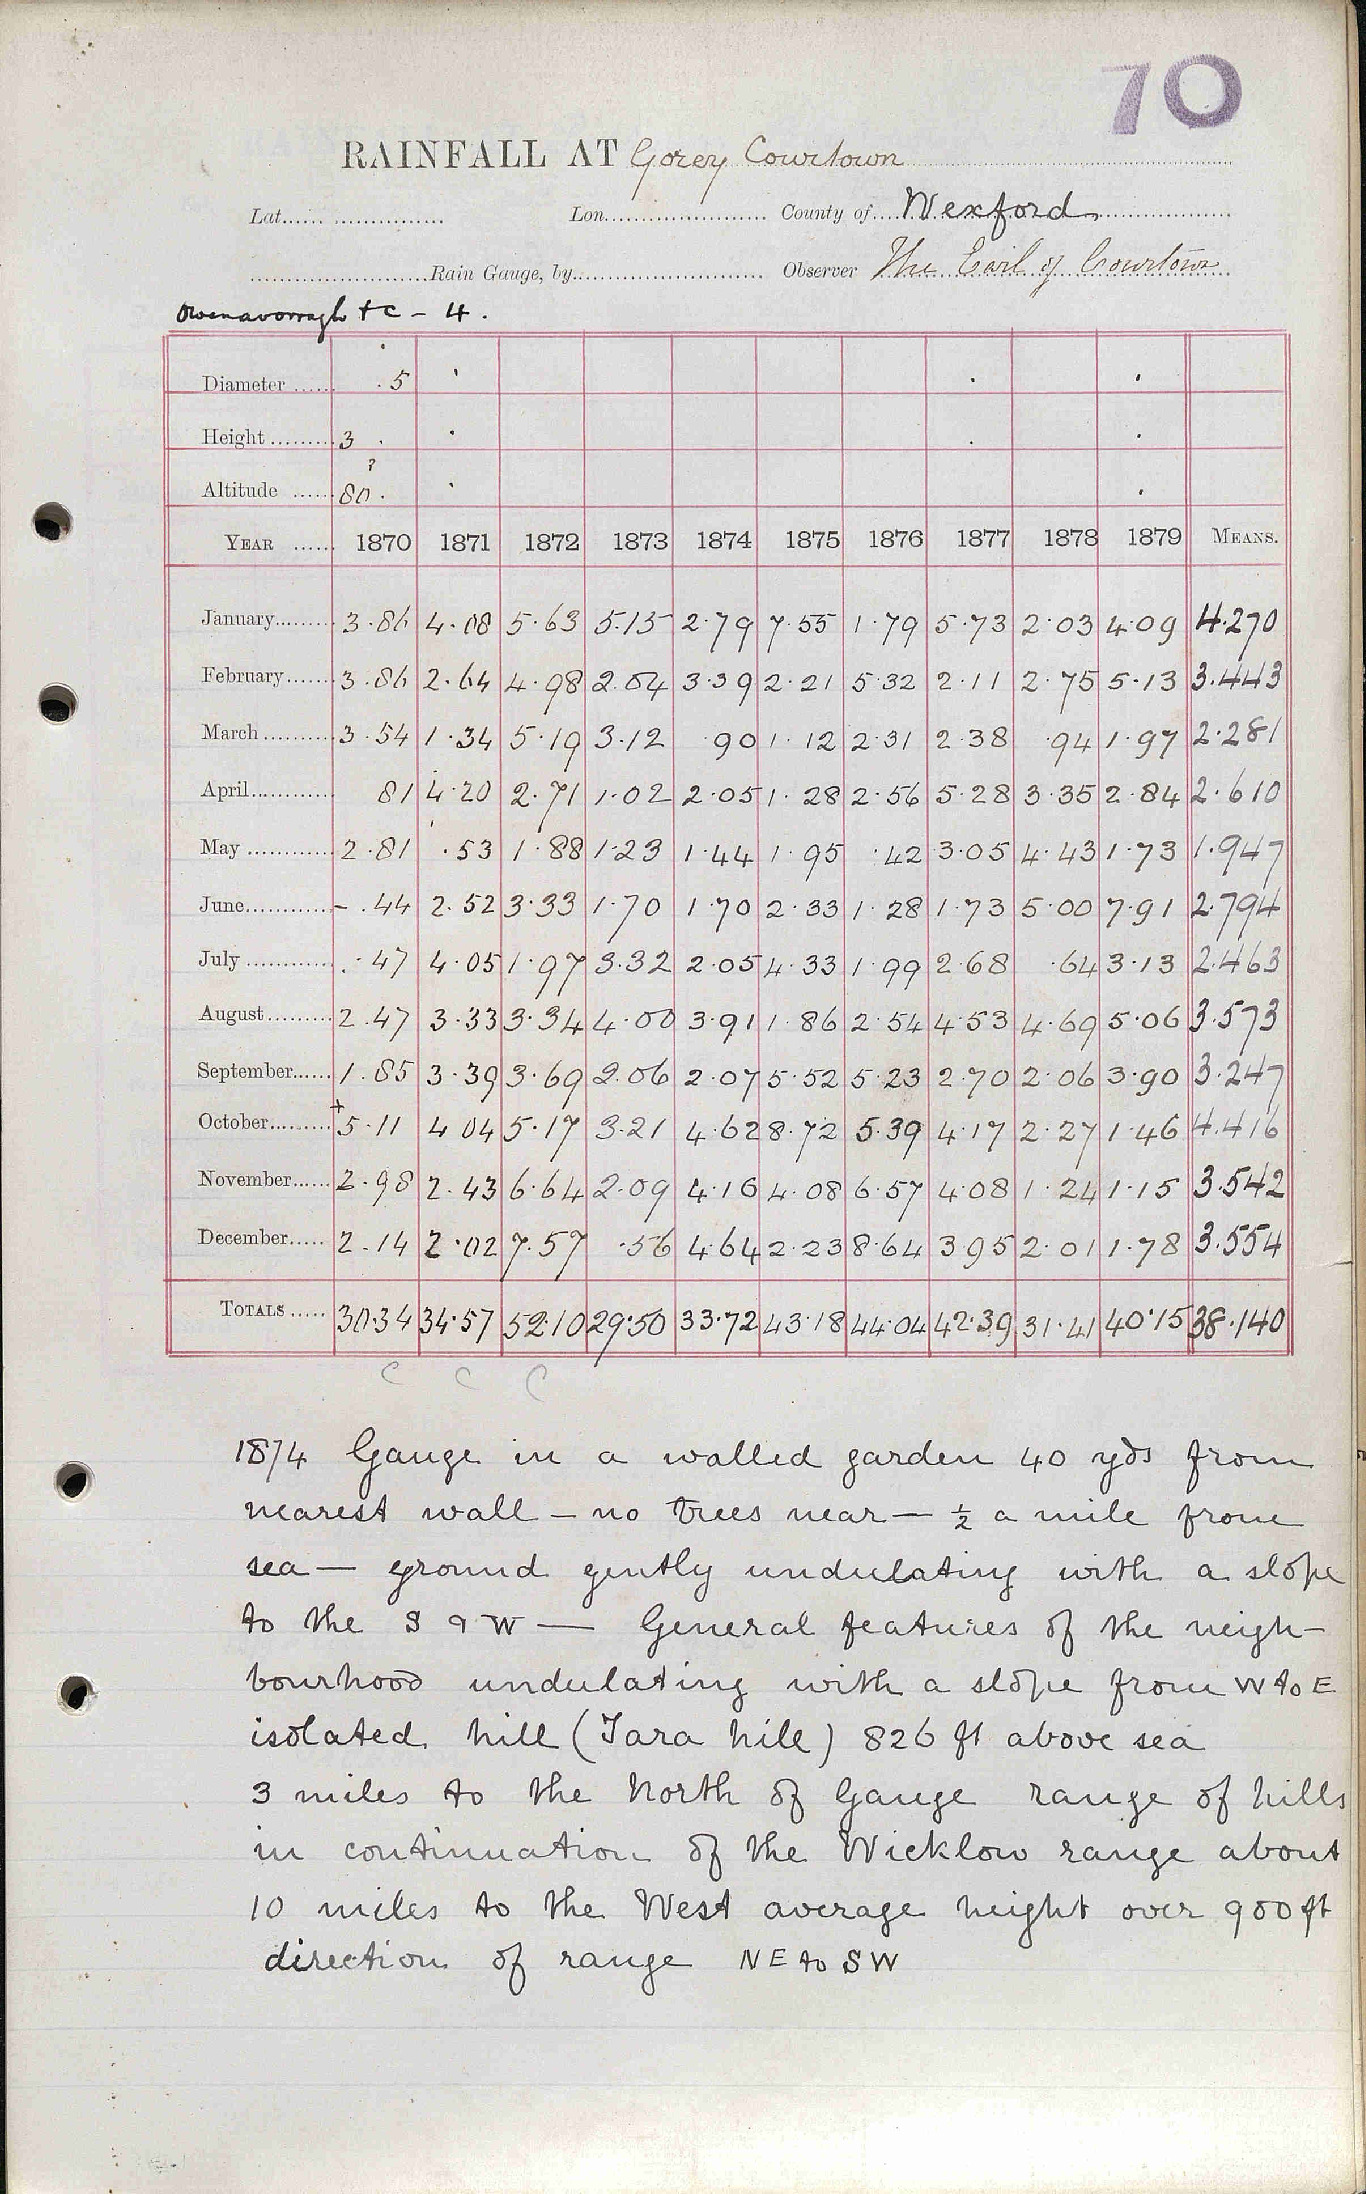 70
RAINFALL AT Gorey Courtown
Lat. Lon. County of Wexford
Rain Gauge, by Observer The Earl of Courtown
Owenavorragh + C - 4.
Diameter 5
Height 3
?
Altitude 80
YEAR 1870 1871 1872 1873 1874 1875 1876 1877 1878 1879 MEANS.
January 3.86 4.08 5.63 5.15 2.79 7.55 1.79 5.73 2.03 4.09 4.270
February 3.86 2.64 4.98 2.04 3.39 2.21 5.32 2.11 2.75 5.13 3.443
March 3.54 1.34 5.19 3.12 .90 1.12 2.31 2.38 .94 1.97 2.281
April 81 4.20 2.71 1.02 2.05 1.28 2.56 5.28 3.35 2.84 2.610
May 2.81 .53 1.88 1.23 1.44 1.95 .42 3.05 4.43 1.73 1.947
June - .44 2.52 3.33 1.70 1.70 2.33 1.28 1.73 5.00 7.91 2.794
July .47 4.05 1.97 3.32 2.05 4.33 1.99 2.68 .64 3.13 2.463
August 2.47 3.33 3.34 4.00 3.91 1.86 2.54 4.53 4.69 5.06 3.573
September 1.85 3.39 3.69 2.06 2.07 5.52 5.23 2.70 2.06 3.90 3.247
October + 5.11 4 04 5.17 3.21 4.62 8.72 5.39 4.17 2.27 1.46 4.416
November 2.98 2.43 6.64 2.09 4.16 4.08 6.57 4.08 1.24 1.15 3.542
December 2.14 2.02 7.57 .56 4.64 2.23 8.64 3.95 2.01 1.78 3.554
TOTALS 30.34 34.57 52.10 29.50 33.72 43.18 44.04 42.39 31.41 40.15 38.140
C C C
1874 Gauge in a walled garden 40 yds from
nearest wall – no trees near — ½ a mile from
sea — ground gently undulating with a slope
to the S & W — General features of the neigh-
bourhood undulating with a slope from W to E
isolated hill (Tara hill) 826 ft above sea
3 miles to the North of Gauge range of hills
in continuation of the Wicklow range about
10 miles to the West average height over 900 ft
direction of range NE to SW